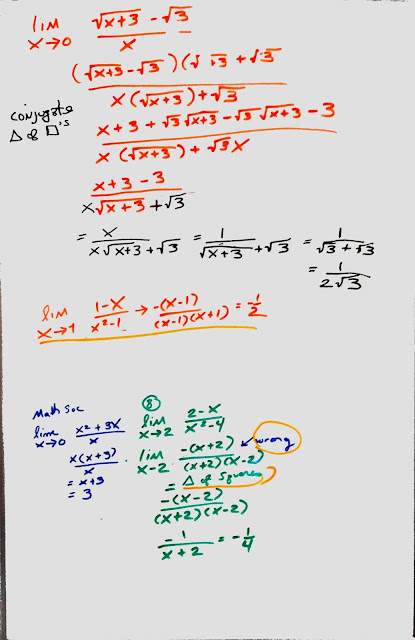 lim x→0 (√x+3 - √3)/x
(√x+3 - √3)(√ x3 + √3) / x(√x+3) + √3
conjugate
Δ of □'s
x+3 + √3 √x+3 - √3 √x+3 - 3 / x(√x+3) + √3 x
x+3-3 / x√x+3 + √3
= x / x√x+3 + √3 = 1 / √x+3 + √3 = 1 / √3 + √3
= 1 / 2√3
lim x→1 1-x / x²-1 → -(x-1) / (x-1)(x+1) = 1/2
Math Soc
lim x→0 x²+3x / x
x(x+3) / x
= x+3
= 3
⑧
lim x→2 2-x / x²-4
lim x-2 -(x+2) / (x+2)(x-2) ↙ wrong
= Δ of squares
-(x-2) / (x+2)(x-2)
-1 / x+2 = -1/4